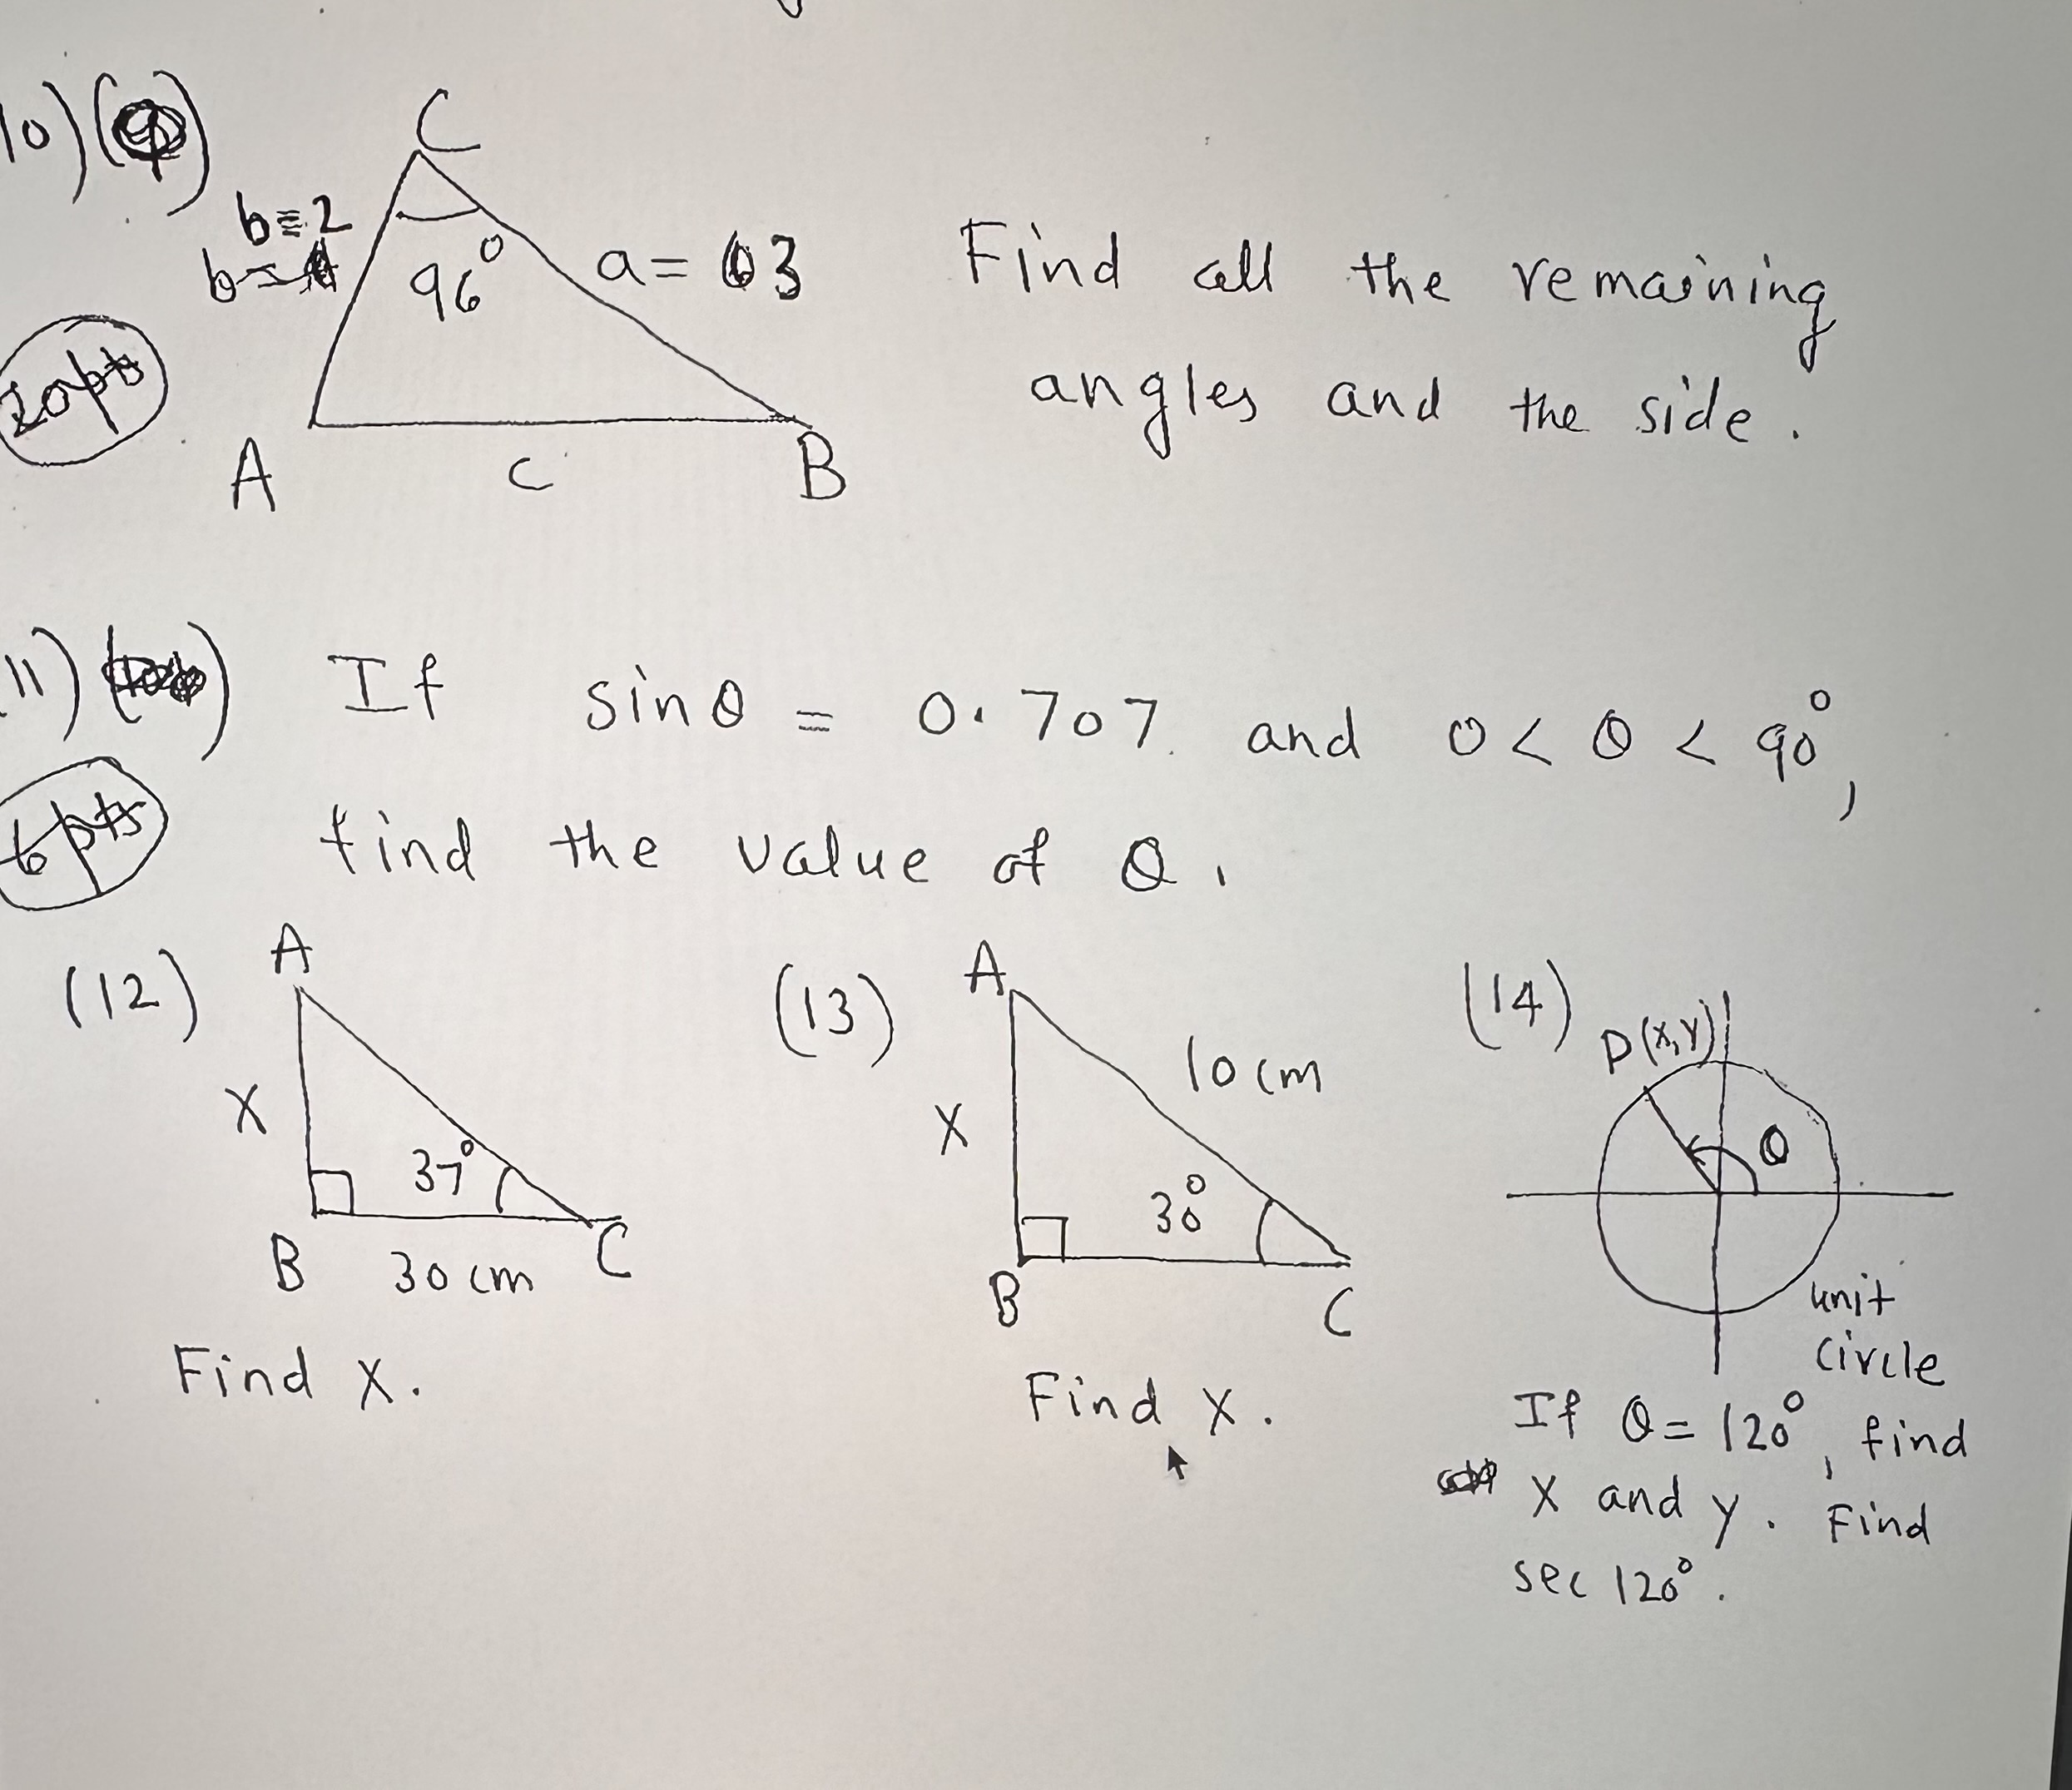 10)
C
b=2
b=
96°
a= 3
Find all the remaining
angles and the side.
20pts
A
c
B
11)
If sinθ = 0.707 and 0<θ<90°,
6pts
find the value of θ.
(12)
A
X
37°
B
30 cm
C
Find X.
(13)
A
10 cm
X
30°
B
C
Find X.
(14)
P(X,Y)
θ
unit
circle
If θ=120°, find
X and y. Find
sec 120°.